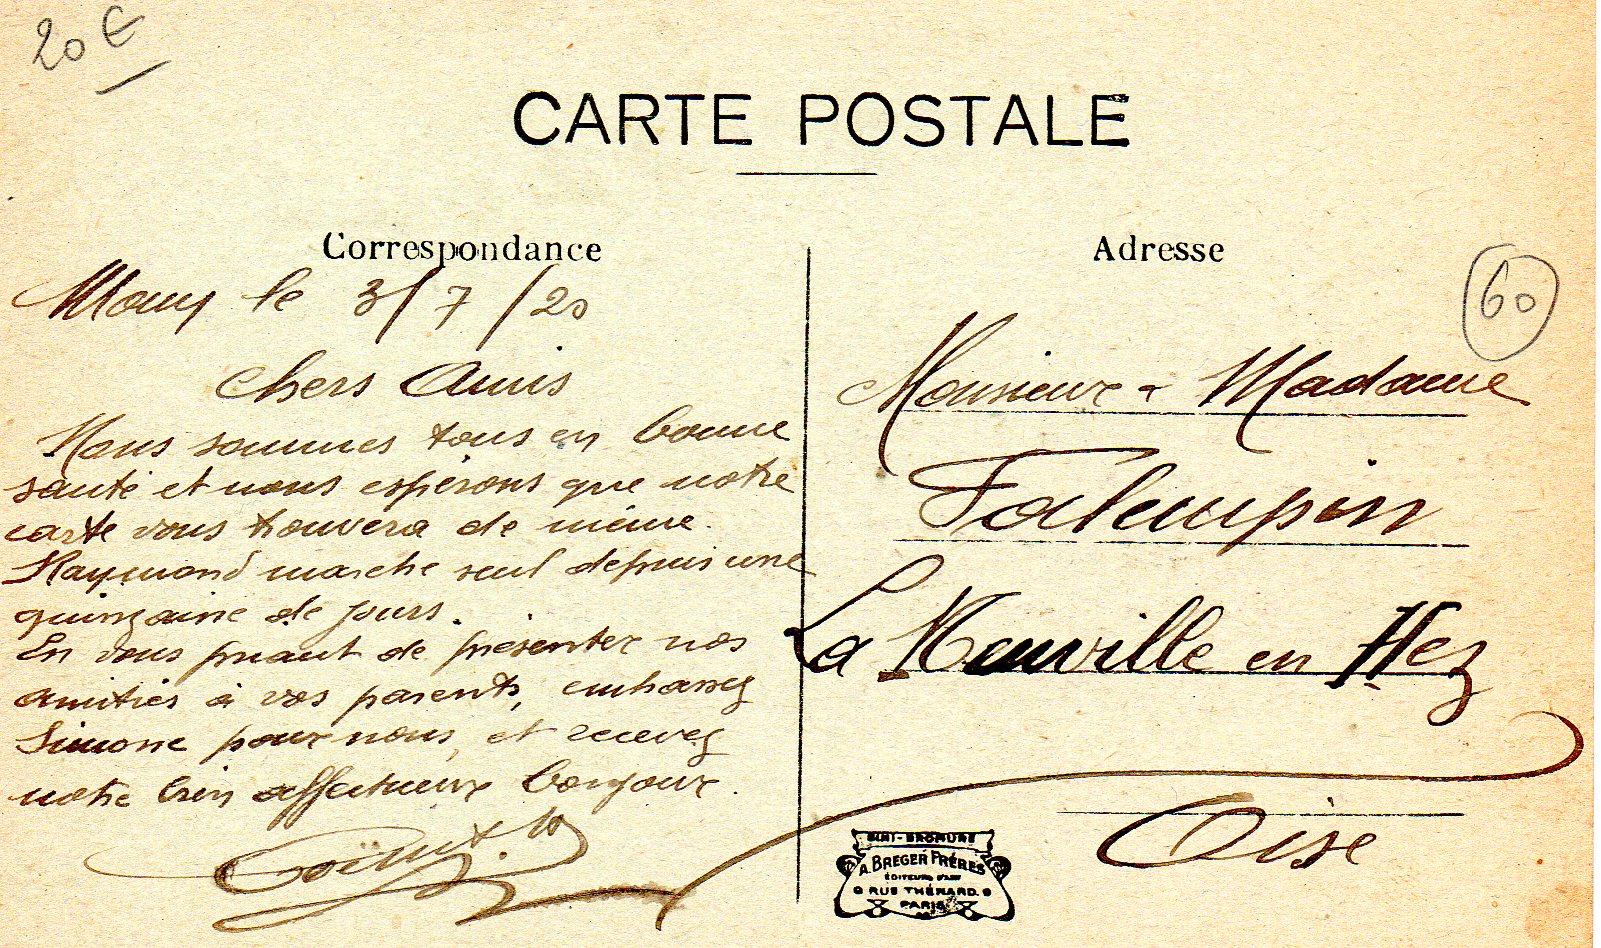 20 €
CARTE POSTALE
Correspondance
Mouy le 3/7/20
Chers Amis
Nous sommes tous en bonne
santé et nous espérons que notre
carte vous trouvera de même.
Raymond marche seul depuis une
quinzaine de jours.
En vous priant de présenter nos
amitiés à vos parents, embrassez
Simone pour nous, et recevez
notre bien affectueux bonjour.
Adresse
60
Monsieur & Madame
Falempin
La Neuville en Hez
Oise
SIMI-BROMURE
A. BREGER FRÈRES
ÉDITEURS D'ART
9 RUE THÉNARD. 9
PARIS